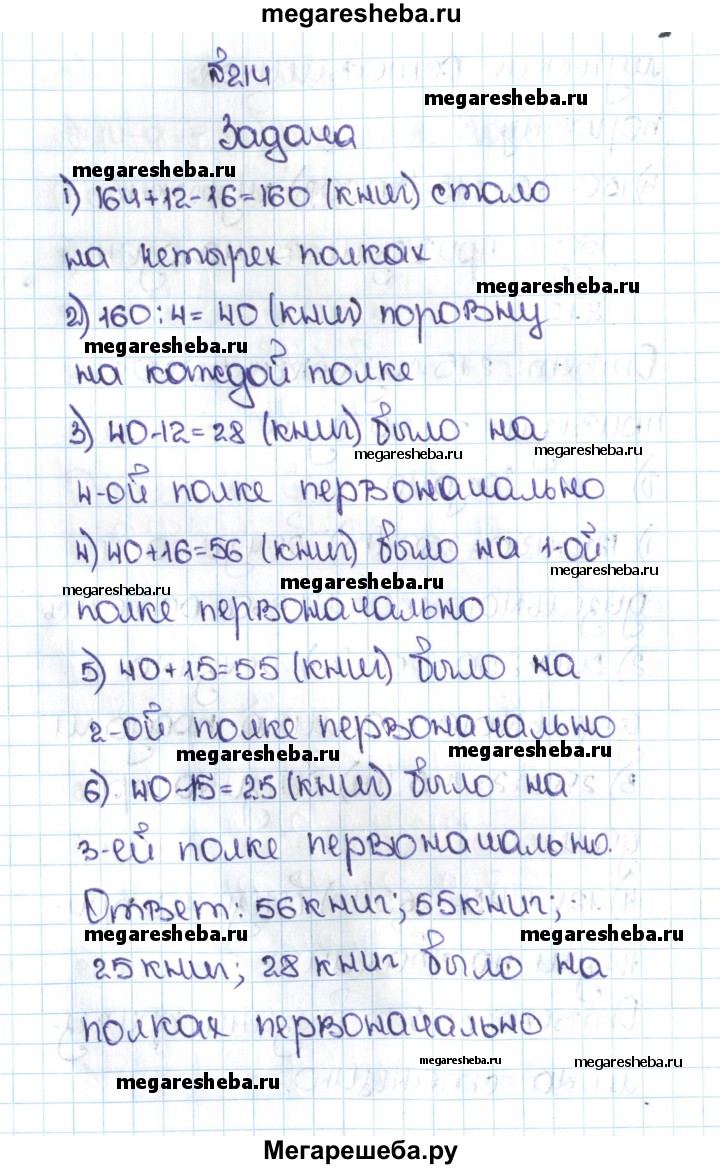 megaresheba.ru
№214
megaresheba.ru
Задача
megaresheba.ru
1) 164+12-16=160 (книг) стало
на четырех полках
megaresheba.ru
2) 160:4= 40 (книг) поровну
megaresheba.ru
на каждой полке
3) 40-12=28 (книг) было на
megaresheba.ru megaresheba.ru
4-ой полке первоначально
4) 40+16=56 (книг) было на 1-ой
megaresheba.ru megaresheba.ru megaresheba.ru
полке первоначально
5) 40+15=55 (книг) было на
2-ой полке первоначально
megaresheba.ru megaresheba.ru
6) 40-15=25 (книг) было на
3-ей полке первоначально.
Ответ: 56 книг; 55 книг;
megaresheba.ru megaresheba.ru
25 книг; 28 книг было на
полках первоначально
megaresheba.ru megaresheba.ru
megaresheba.ru
Мегарешеба.ру